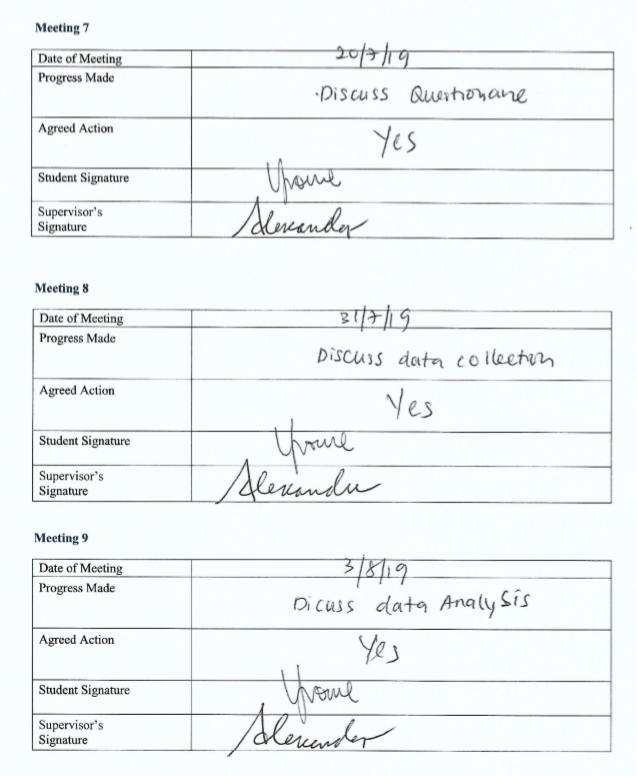 Meeting 7
Date of Meeting 20/7/19
Progress Made
Discuss Questionane
Agreed Action
Yes
Student Signature Yvonne
Supervisor's
Signature Alexander
Meeting 8
Date of Meeting 31/7/19
Progress Made
Discuss data collection
Agreed Action
Yes
Student Signature Yvonne
Supervisor's
Signature Alexander
Meeting 9
Date of Meeting 3/8/19
Progress Made
Dicuss data Analysis
Agreed Action
Yes
Student Signature Yvonne
Supervisor's
Signature Alexander